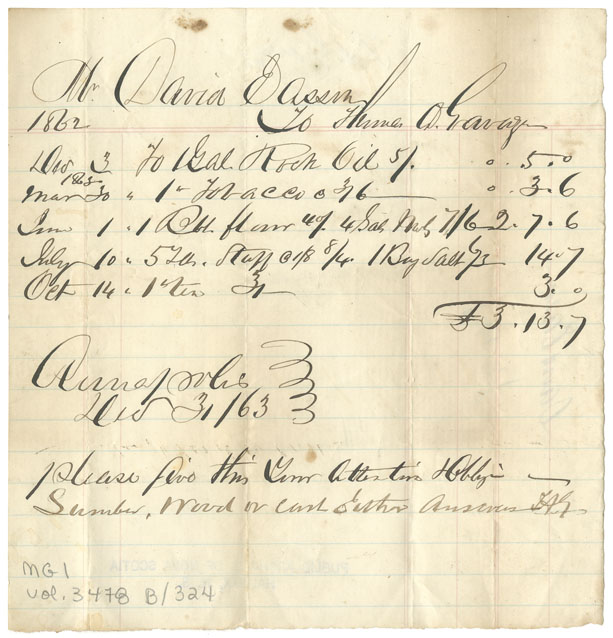 Mr David Easson
1862 To Thomas A. Gavaza
Dec 3 To 1 Gal. Rock Oil 5/. 0. 5. 0
1863
Mar 30 " 1 lb Tobacco @ 3/6 0. 3. 6
June 1. 1 Bbl flour 40/. 4 Gals Mols 7/6 2. 7. 6
July 10 " 5 yds. Stuff 1 Bag Salt 14. 7
Oct 14. 1 lb Tea 3/ 3. 0
£ 3. 13. 7
Annapolis
Dec 31/63
please give this your Attention & Oblige
Lumber, Wood or cash Either Answers
MG1
vol. 3478 B/324